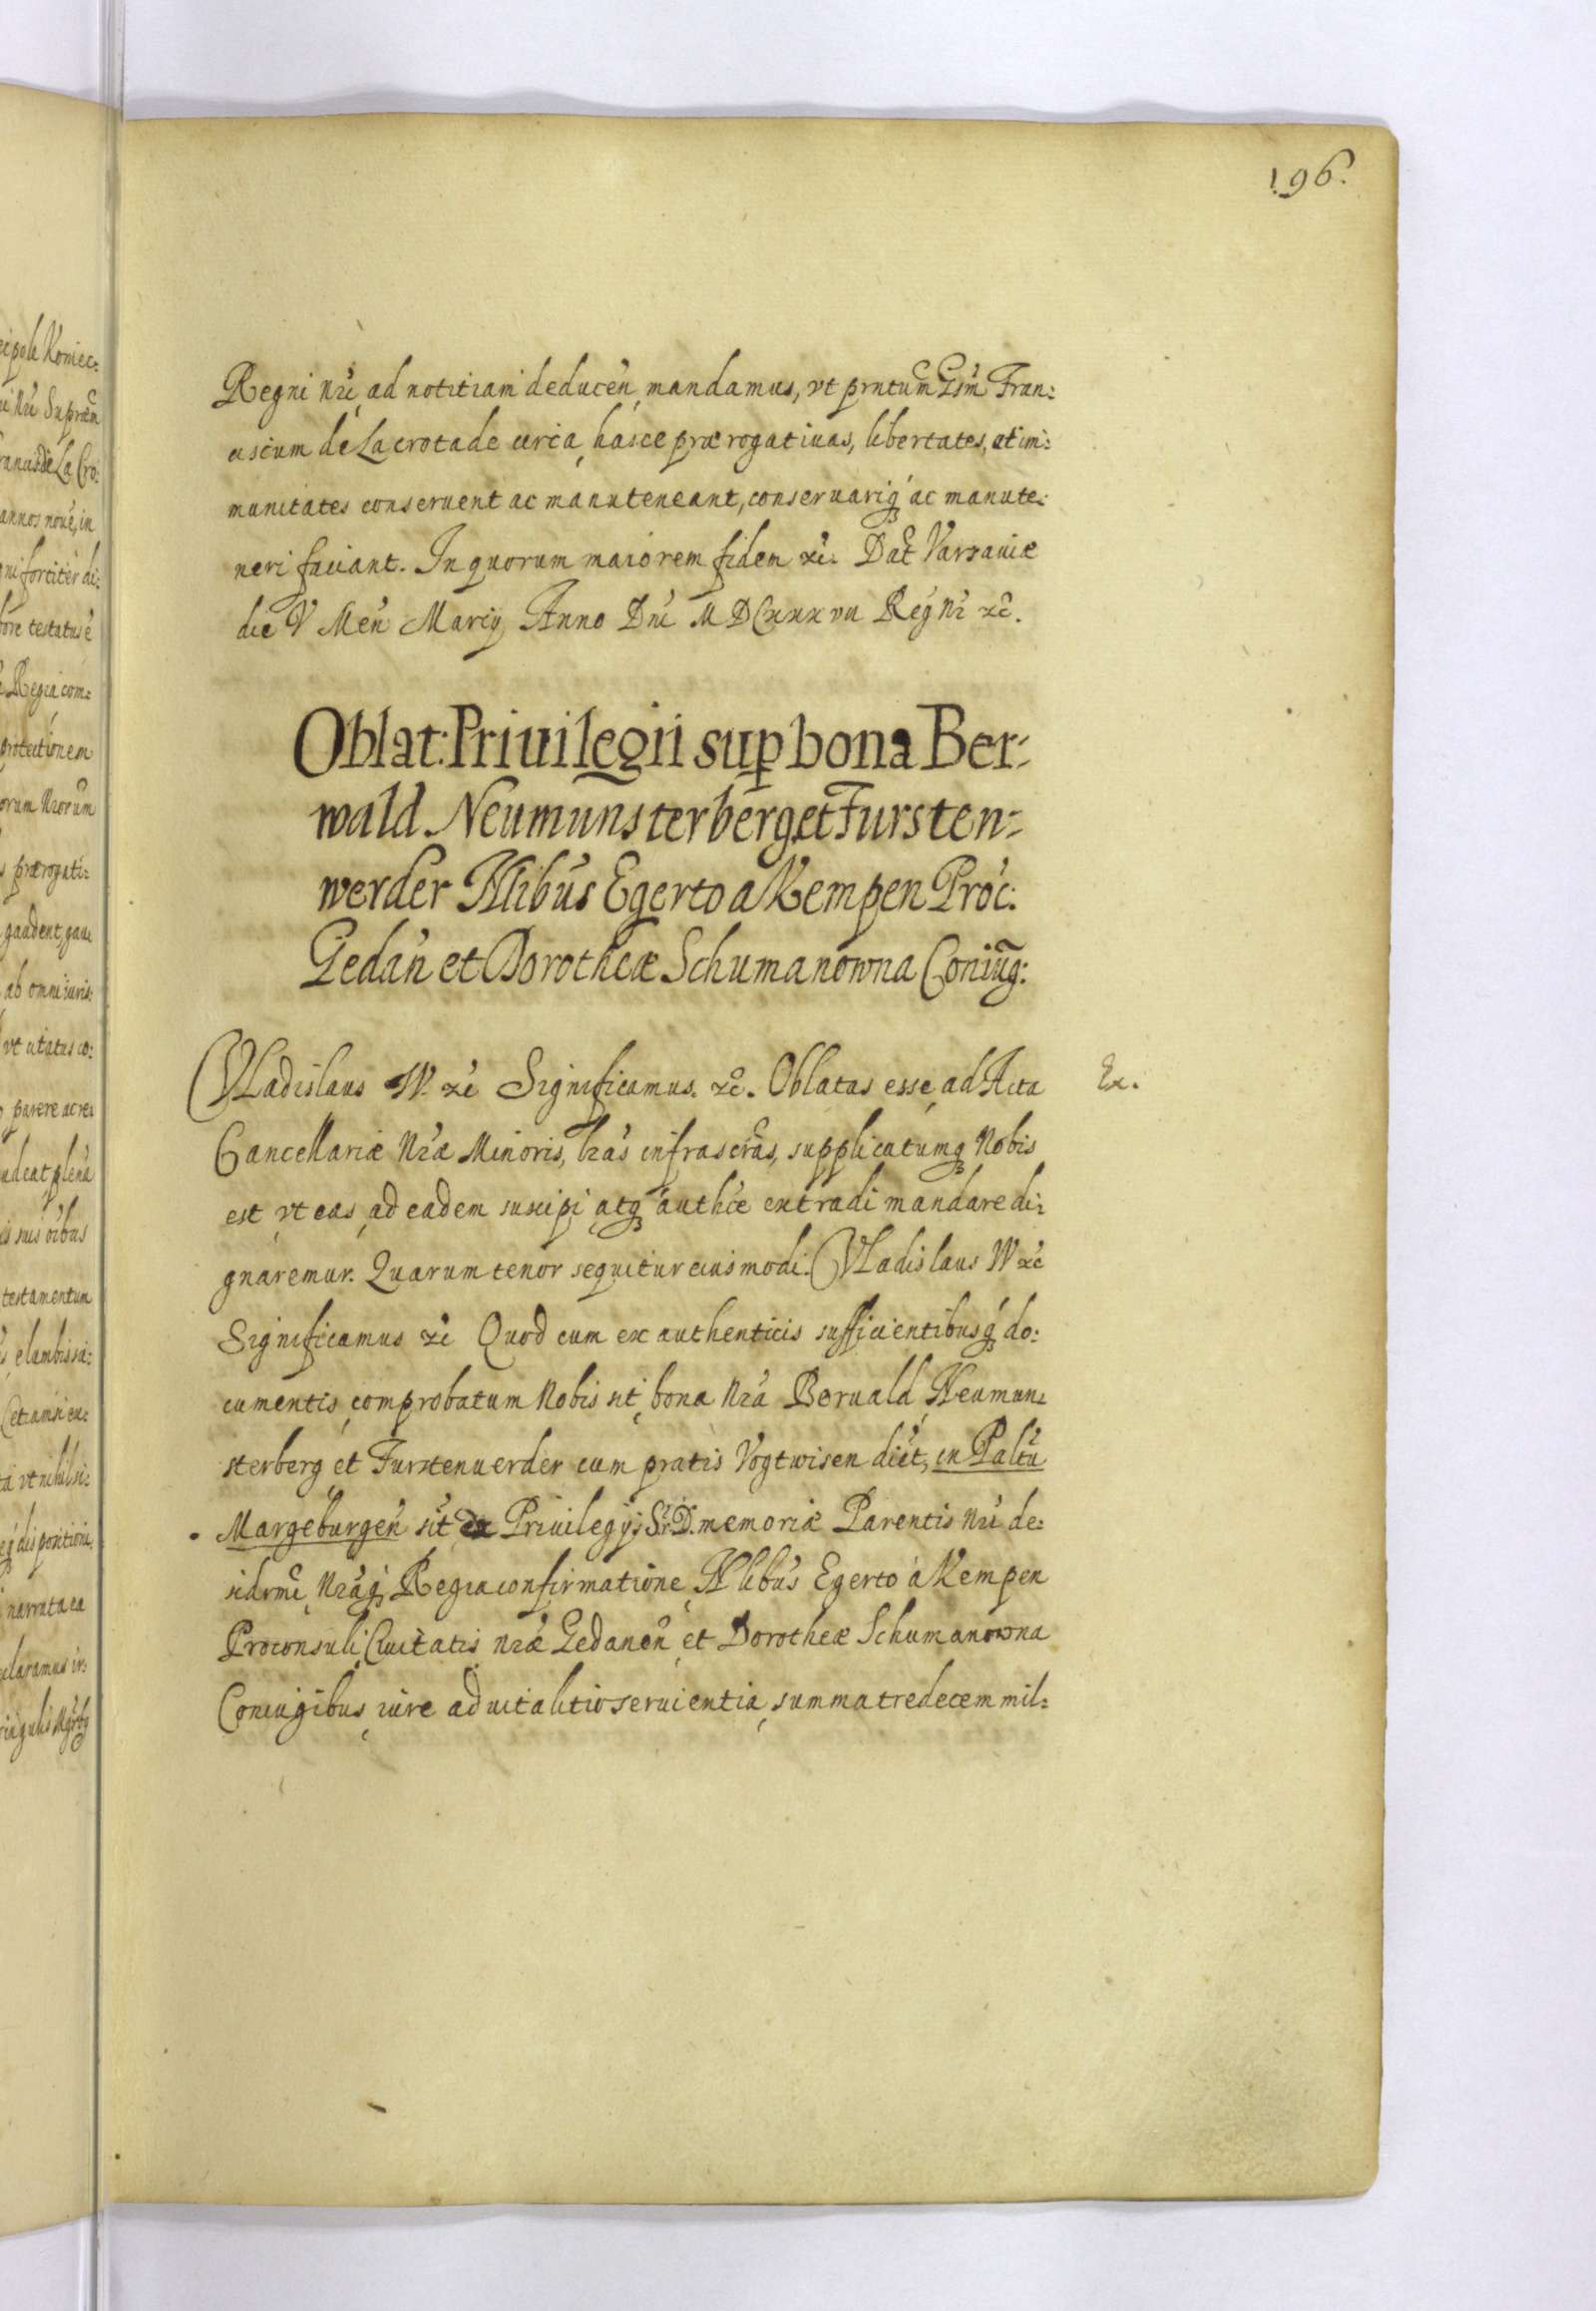 196.
Regni Nri ad notitiam deducen mandamus, vt prntum Gsm Fran:
ciscum de Lacrotade circa hasce prærogatiuas, libertates, et im:
munitates conseruent ac manuteneant, conseruariq ac manute:
neri faciant. In quorum maiorem fidem &c. Dat Varsauiæ
die V Men Marcij Anno Dni MDCXXXVII Reg Nr &c.
Oblat: Priuilegii sup bona Ber:
wald Neumunsterberg et Fursten:
werder Nlibus Egerto a Kempen Proc:
Gedan et Dorotheæ Schumanowna Coniug:
Vladislaus IV. &c Significamus. &c. Oblatas esse ad Acta
Ex.
Cancellariæ Nræ Minoris, lras infrascras, supplicatumq Nobis
est vt eas ad eadem suscipi atq authce extradi mandare di:
gnaremur. Quarum tenor sequitur eiusmodi. Vladislaus IV &c
Significamus &c Quod cum ex authenticis sufficientibusq do:
cumentis comprobatum Nobis sit bona Nra Beruald Neumun:
sterberg et Furstenuerder cum pratis Vogtwisen dict, in Paltu
Margeburgen sit ex Priuilegijs Sr. D. memoriæ Parentis Nri de:
sidrmi Nraq Regia confirmatione Nlibus Egerto a Kempen
Proconsuli Ciuitatis Nræ Gedanen et Dorotheæ Schumanowna
Coniugibus iure aduitalitio seruientia summa tredecem mil: